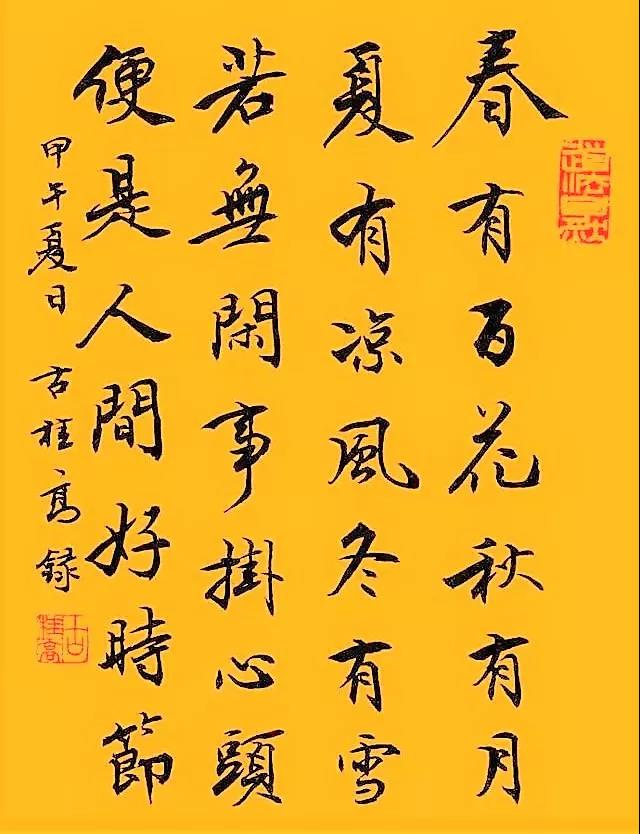 春有百花秋有月
夏有涼風冬有雪
若無閑事掛心頭
便是人間好時節
甲午夏日 古桂高録
古桂高